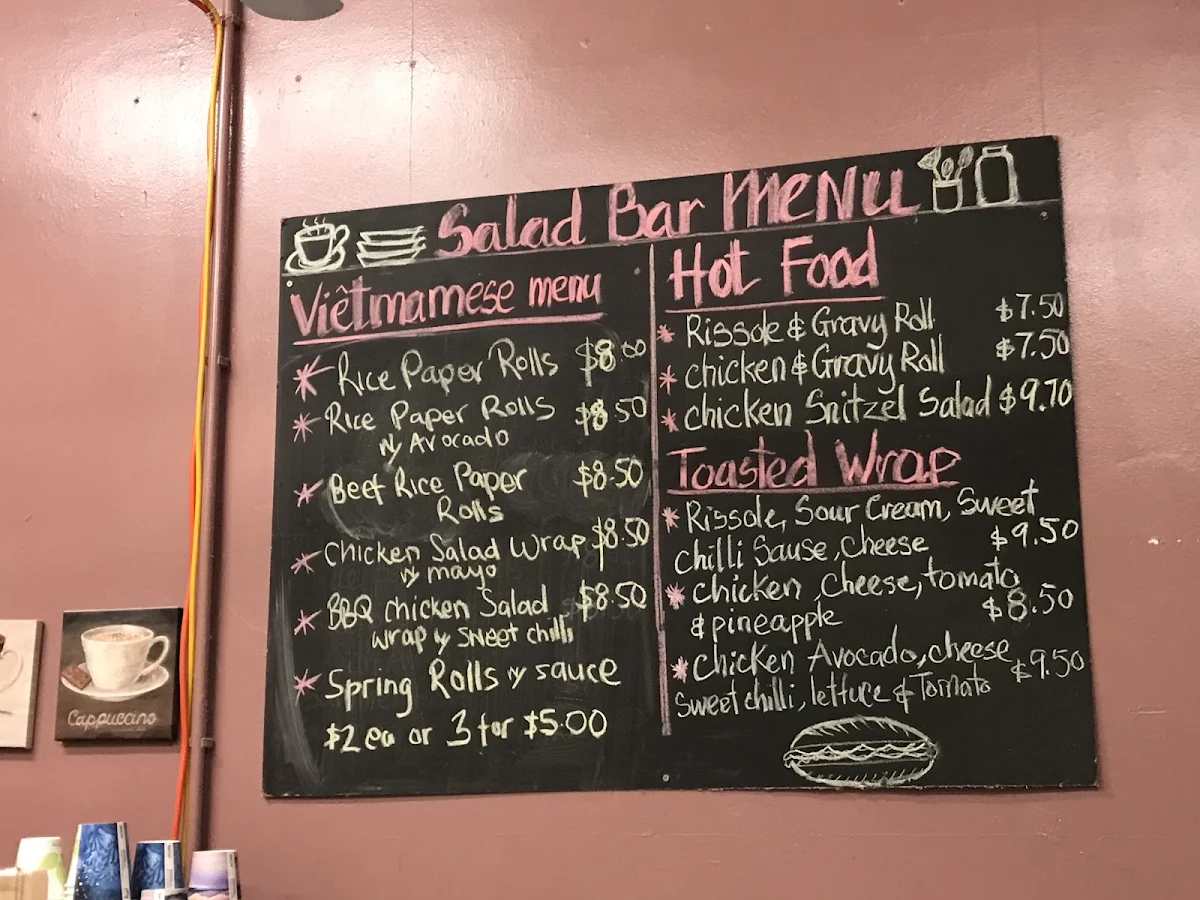 Salad Bar MENU
Viêtmamese menu
Rice Paper Rolls $8.00
Rice Paper Rolls $8.50
w/ Avocado
Beef Rice Paper $8.50
Rolls
Chicken Salad Wrap $8.50
w/ mayo
BBQ chicken Salad $8.50
wrap w/ sweet chilli
Spring Rolls w/ sauce
$2 ea or 3 for $5.00
Hot Food
Rissole & Gravy Roll $7.50
chicken & Gravy Roll $7.50
chicken Snitzel Salad $9.70
Toasted Wrap
Rissole, Sour Cream, Sweet
Chilli Sause, Cheese $9.50
chicken, cheese, tomato
& pineapple $8.50
chicken Avocado, cheese
Sweet chilli, lettuce & Tomato $9.50
Cappuccino